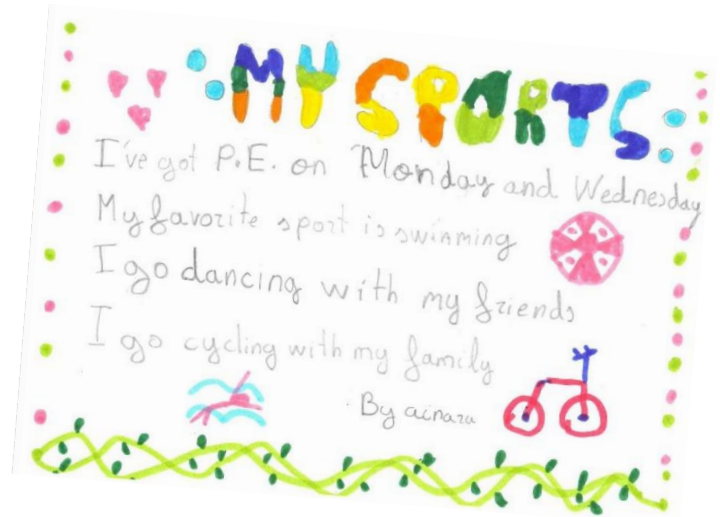 MY SPORTS
I've got P.E. on Monday and Wednesday
My favorite sport is swinming
I go dancing with my friends
I go cycling with my family
By ainara